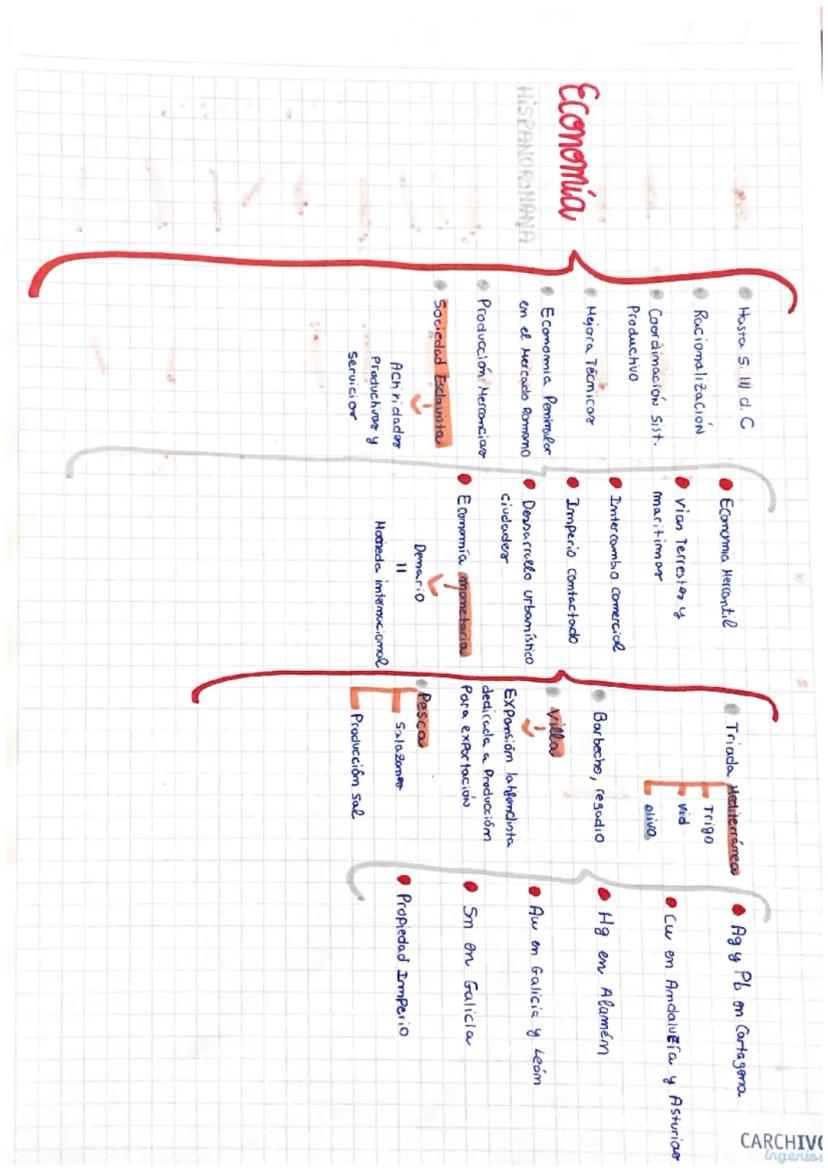 Economía
HISPANOROMANA
Hasta S. III d.C
Racionalización
Coordinación Sist.
Productivo
Mejora Técnicas
Economía Peninsular
en el Mercado Romano
Producción Mercancías
Sociedad Esclavista
Actividades
Productivas y
servicios
Economía Mercantil
Vías Terrestes y
marítimas
Intercambio comercial
Imperio contactado
Desarrollo urbanístico
ciudades
Economía monetaria
Denario
=
Moneda internacional
Triada Mediterránea
Trigo
Vid
olivo
Barbecho, regadío
Villas
Expansión latifundista
dedicada a Producción
Para exportación
Pesca
Salazones
Producción sal
Ag y Pb en Cartagena
Cu en Andalucía y Asturias
Hg en Almadén
Au en Galicia y León
Sn en Galicia
Propiedad Imperio
CARCHIVO
Ingenios